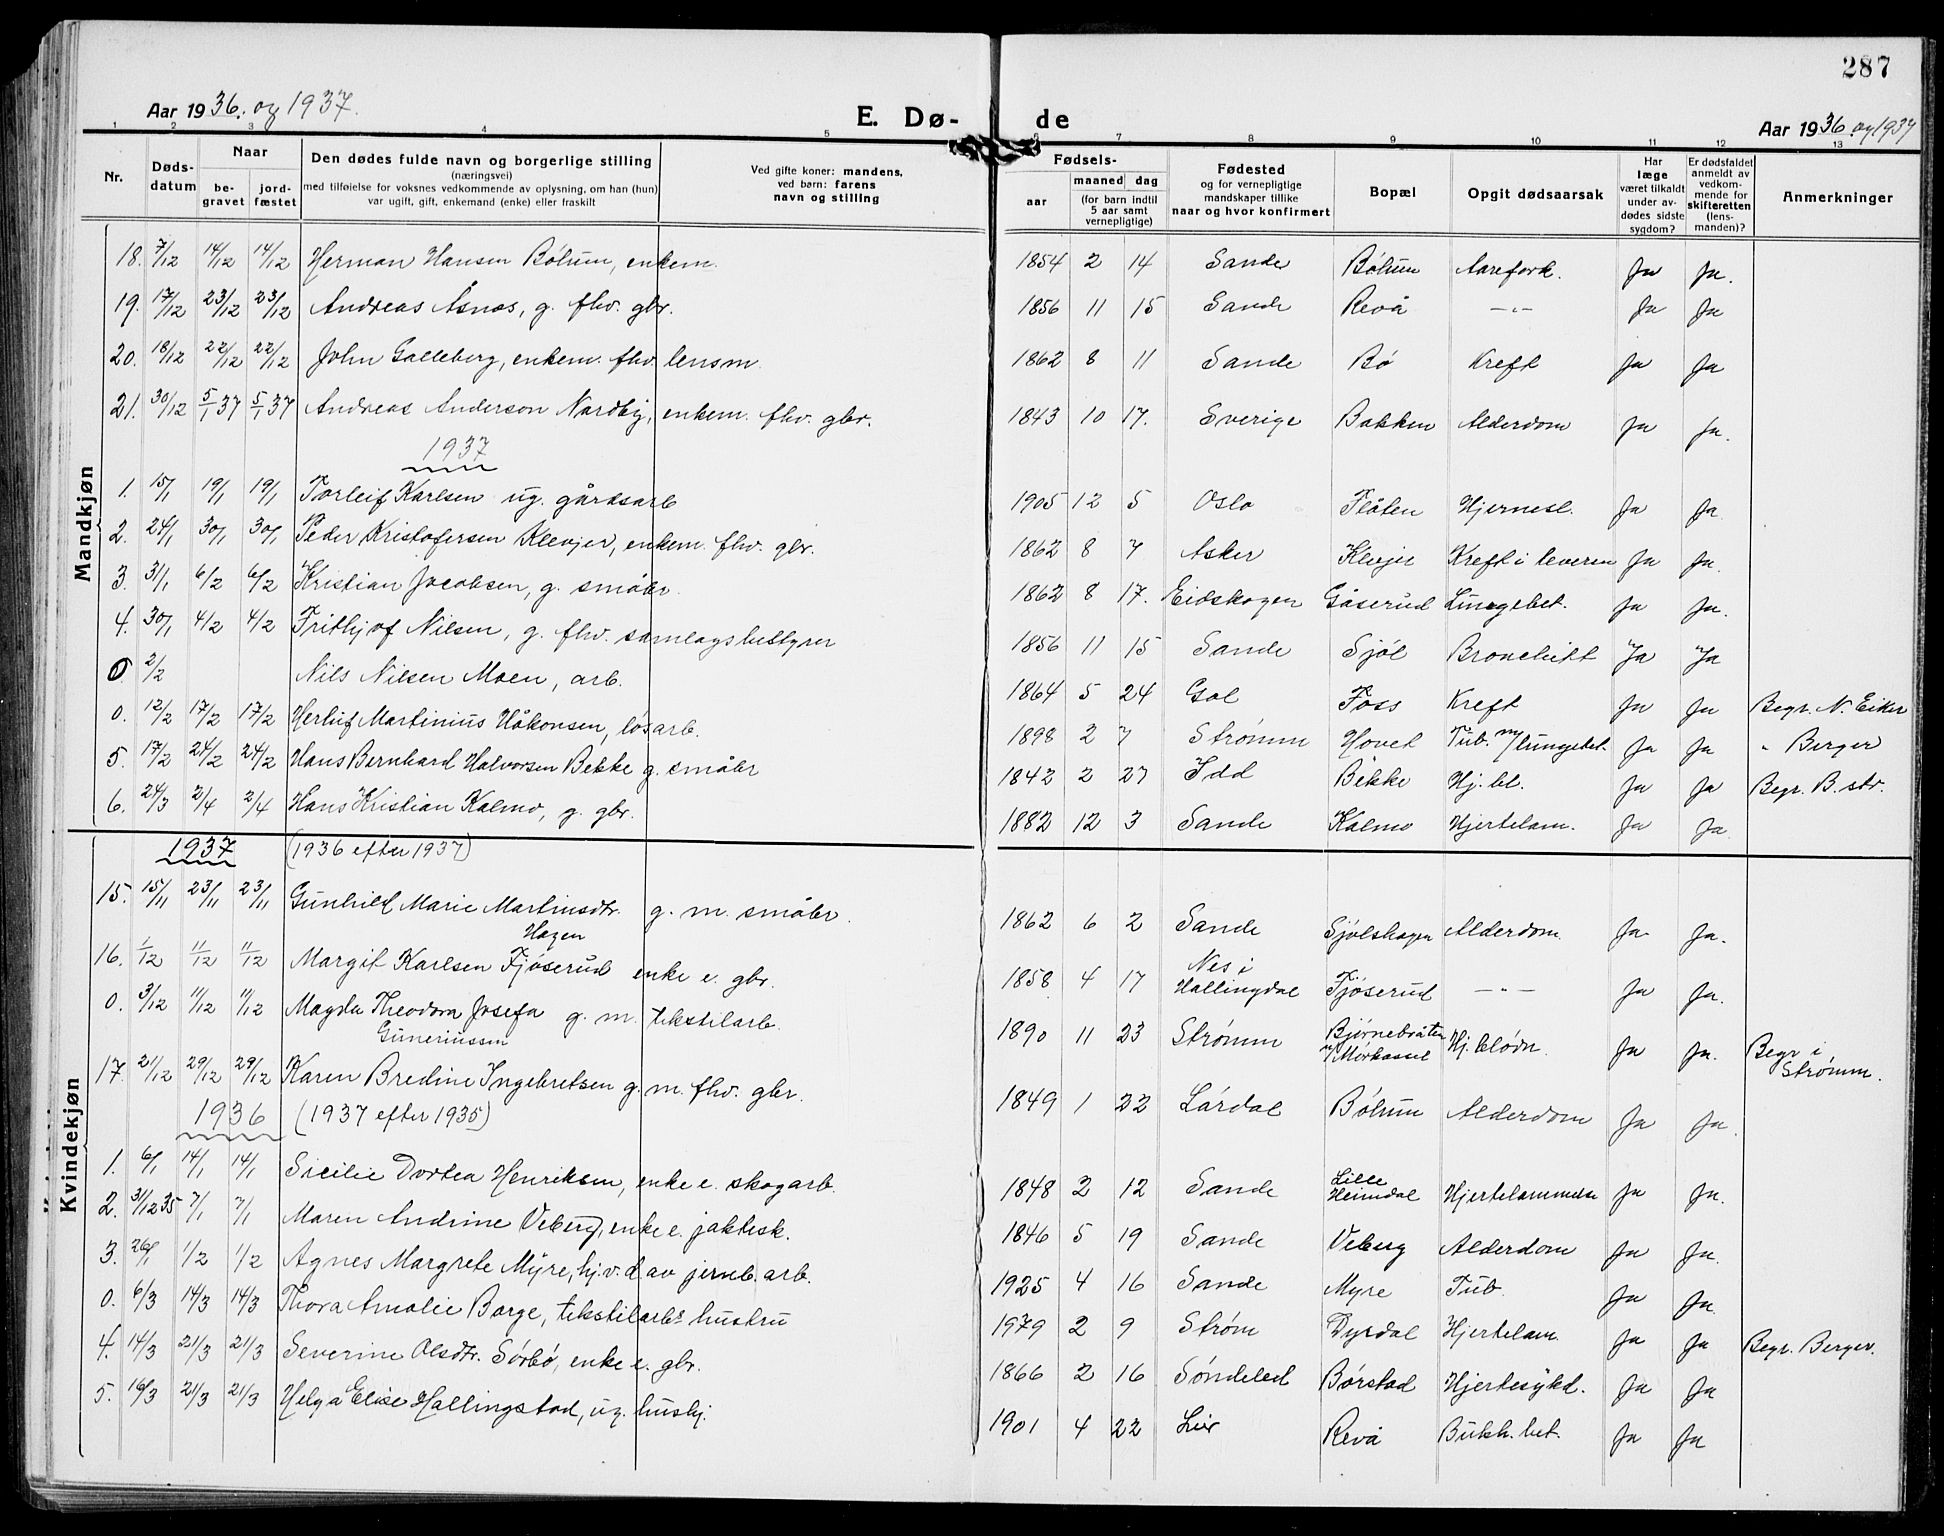 287
Aar 1936. og 1937.
E. Dø- de
Aar 1936. og 1937
1 2 3 4 5 6 7 8 9 10 11 12 13
Nr.
Døds-datum
Naar
be-gravet
jord-fæstet
Den dødes fulde navn og borgerlige stilling
(næringsvei)
med tilføielse for voksnes vedkommende av oplysning, om han (hun)
var ugift, gift, enkemand (enke) eller fraskilt
Ved gifte koner: mandens,
ved børn: farens
navn og stilling
Fødsels-
aar
maaned dag
(for barn indtil
5 aar samt
vernepligtige)
Fødested
og for vernepligtige
mandskaper tillike
naar og hvor konfirmert
Bopæl
Opgit dødsaarsak
Har
læge
været tilkaldt
under av-
dødes sidste
sygdom?
Er dødsfaldet
anmeldt av
vedkom-
mende for
skifteretten
(lens-
manden)?
Anmerkninger
Mandkjøn
18. 7/12 14/12 14/12 Herman Hansen Bølum, enkem. 1854 2 14 Sande Bølum Aarefork. Ja Ja.
19. 17/12 23/12 23/12 Andreas Åsnes, g. fhv. gbr. 1856 11 15 Sande Revå —"— Ja Ja
20. 18/12 22/12 22/12 John Galleberg, enkem. fhv. lensm. 1862 8 11 Sande Bø Kreft Ja Ja
21. 30/12 5/1 37 5/1 37 Andreas Anderson Nordby, enkem. fhv. gbr. 1843 10 17. Sverige Bakken Alderdom Ja Ja.
1937
1. 15/1 19/1 19/1 Torleif Karlsen ug. gårdsarb 1905 12 5 Oslo Flåten Hjernesl. Ja Ja
2. 24/1 30/1 30/1 Peder Kristofersen Klevjer, enkem. fhv. gbr. 1862 8 7 Asker Klevjer Kreft i leveren Ja Ja.
3. 31/1 6/2 6/2 Kristian Jacobsen, g. småbr. 1862 8 17. Eidskogen Gåserud Lungebet. Ja Ja.
4. 30/1 4/2 4/2 Frithjof Nilsen, g. fhv. samlagsbestyrer 1856 11 15 Sande Sjøl Bronchitt Ja Ja
0 2/2 Nils Nilsen Moen, arb. 1864 5 24 Gol Foss Kreft Ja Ja Begr. N. Eiker
0. 12/2 17/2 17/2 Herluf Martinius Håkonsen, løsarb. 1898 2 7 Strømm Hovet Tub. m/lungebet. Ja Ja " Berger
5. 17/2 24/2 24/2 Hans Bernhard Halvorsen Bekke g. småbr 1842 2 27 Idd Bekke Hj. bl. Ja Ja Begr. B. str.
6. 24/3 2/4 2/4 Hans Kristian Kalmo, g. gbr. 1882 12 3 Sande Kalmo Hjertelam. Ja Ja
Kvindekjøn
1937 (1936 efter 1937)
15. 15/11 23/11 23/11 Gunhild Marie Martinsdtr. Hagen g. m. småbr. 1862 6 2 Sande Sjølskogen Alderdom. Ja Ja.
16. 1/12 11/12 11/12 Margit Karlsen Fjøserud enke e. gbr. 1858 4 17 Nes i Hallingdal Fjøserud —"— Ja Ja.
0. 3/12 11/12 11/12 Magda Theodora Josefa Guneriussen g. m. tekstilarb. 1890 11 23 Strømm Bjørnebråten Hj. blødn. Ja Ja. Begr i Strømm.
17. 21/12 29/12 29/12 Karen Bredine Ingebretsen g. m. fhv. gbr. 1849 1 22 Lårdal Bølum Alderdom Ja Ja.
1936 (1937 efter 1935)
1. 6/1 14/1 14/1 Sicilie Dortea Henriksen, enke e. skogarb. 1848 2 12 Sande Lille Heimdal Hjertelammelse Ja Ja.
2. 31/12 35 7/1 7/1 Maren Andrine Veberg, enke e. jaktesk. 1846 5 19 Sande Veberg Alderdom Ja Ja.
3. 26/1 1/2 1/2 Agnes Margrete Myre, hj. v. d. av jernb. arb. 1925 4 16 Sande Myre Tub. Ja Ja.
0. 6/3 14/3 14/3 Thora Amalie Borge, tekstilarbs hustru 1979 2 9 Strøm Dyrdal Hjertelam. Ja Ja Begr. Berger.
4. 14/3 21/3 21/3 Severine Olsdtr. Sørbø, enke e. gbr. 1866 2 16 Søndeled Børstad Hjertesykd. Ja Ja
5. 16/3 21/3 21/3 Helga Elise Hallingstad, ug. hushj. 1901 4 22 Lier Revå Bukh. bet. Ja Ja